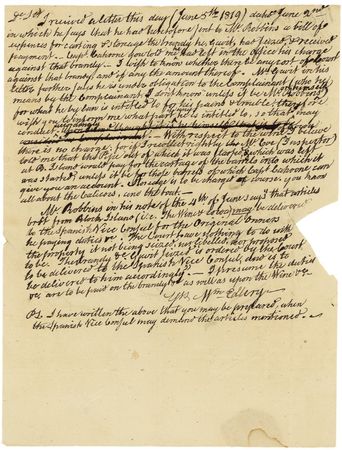 Dr Sir
I received a letter this day (June 5th 1819) dated June 2nd
in which he says that he had heretofore sent to Mr Robbins a bill of
expences for carting & Storage the brandy he, Guest, has
payment. Capt Cahoone has told me
against that brandy. I wish to know whether there be any cost of Court
against that brandy, and if any the amount thereof. Mr Guest in his
letter further says he is under obligation to the Complainant (who he
means by the Complainant I dont know unless it be Mr. Robbins)
for what he by law is entitled to for his pains & trouble; therefore I
wish you to inform me what part he is entitled to, so that I may
conduct
With respect to the
there is no charge: for if I recollect right
told me that the Pipe out of which it was
at B. Island would pay for the cartage of the barrels into which it
was started, unless it be for those barrels of which Capt Cahoone can
give you an account. Storage is to be charged of course. You know
all about the calicoes, and the boat.—
Mr Robbins in his note of the 4th of June says that articles
brot from Block Island (i.e. the Wine & calicoes) may be delivered
to the Spanish Vice Consul for the Original Owners
he paying duties &c. The Court have nothing to do with
the property, it not being seized, or libelled, nor proposed
to be. The brandy &c Court seized is ordered by the Court
to be delivered to the Spanish Vice Consul, and is to
be delivered to him accordingly.— I presume the duties
&c are to be paid on the brandy &c as well as upon the Wine &c
Yrs, Wm Ellery
PS I have written the above that you may be prepared, when
the Spanish Vice Consul may demand the articles mentioned.